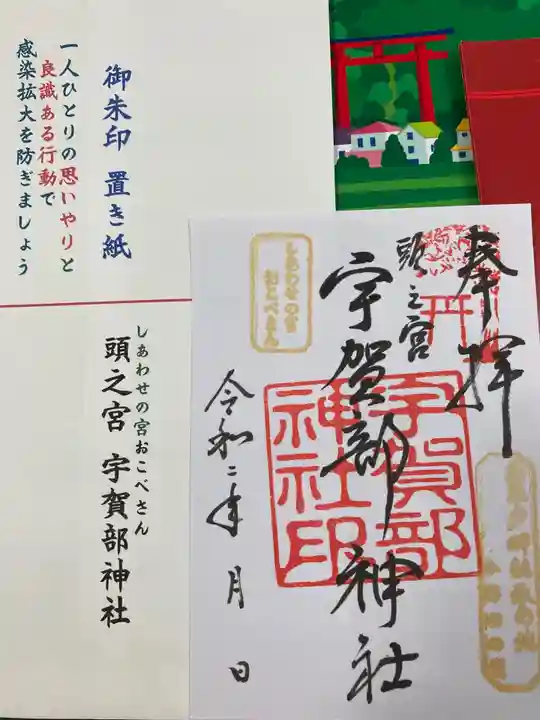 御朱印 置き紙
一人ひとりの思いやりと
良識ある行動で
感染拡大を防ぎましょう
しあわせの宮おこべさん
頭之宮 宇賀部神社
奉拝
頭之宮
宇賀部神社
宇賀部
神社印
しあわせの宮
おこべさん
令和二年 月 日